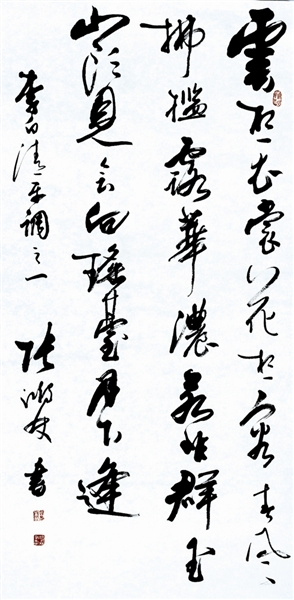 雲想衣裳花想容春風
拂檻露華濃若非群玉
山頭見会向瑤臺月下逢
李白清平調之一 張 書